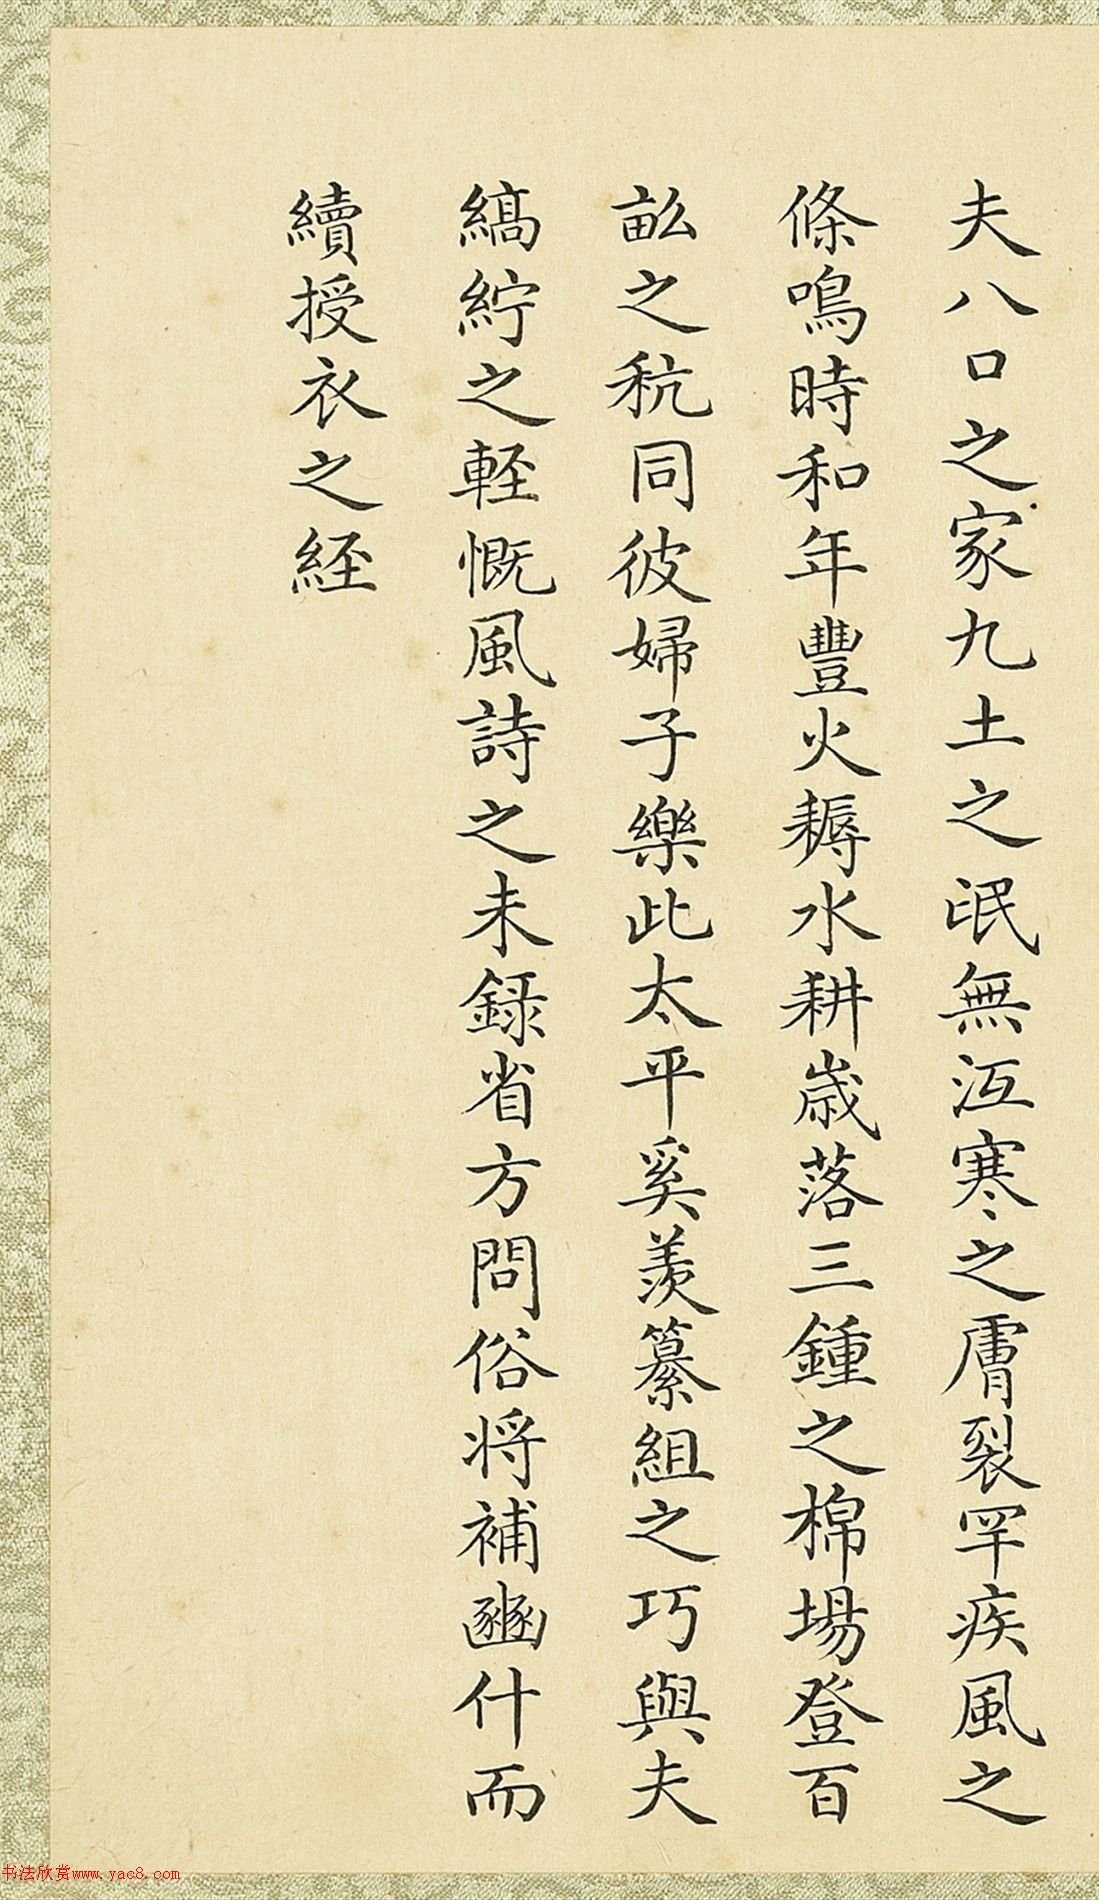 夫八口之家九土之氓無沍寒之膚裂罕疾風之
條鳴時和年豐火耨水耕歲落三鍾之棉場登百
畝之秔同彼婦子樂此太平奚羨纂組之巧與夫
縞紵之輕慨風詩之未録省方問俗将補豳什而
續授衣之経
书法欣赏www.yac8.com